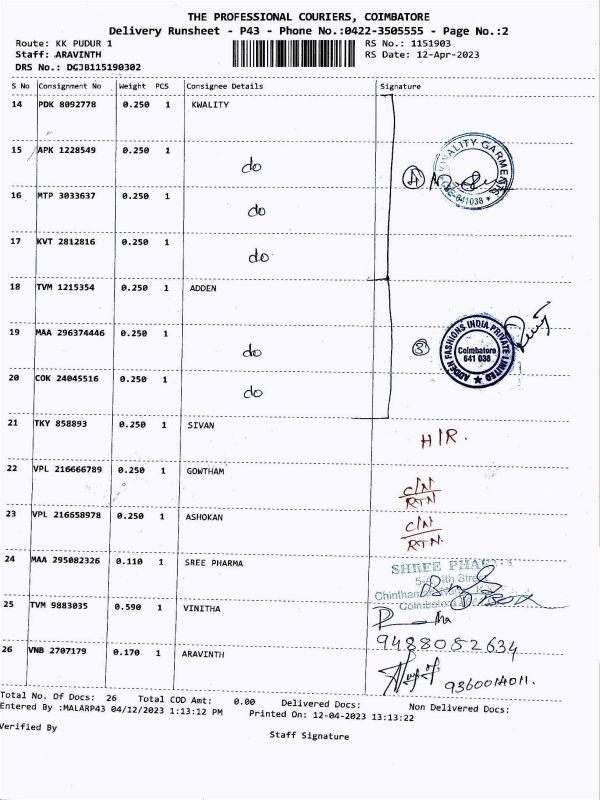 THE PROFESSIONAL COURIERS, COIMBATORE
Delivery Runsheet - P43 - Phone No.:0422-3505555 - Page No.:2
Route: KK PUDUR 1 RS No.: 1151903
Staff: ARAVINTH RS Date: 12-Apr-2023
DRS No.: DGJB115190302
S No Consignment No Weight PCS Consignee Details Signature
14 PDK 8092778 0.250 1 KWALITY
15 APK 1228549 0.250 1 do
KWALITY GARMENTS
641038
4
16 MTP 3033637 0.250 1 do
17 KVT 2812816 0.250 1 do
18 TVM 1215354 0.250 1 ADDEN
19 MAA 296374446 0.250 1 do
3
FASHIONS INDIA PRIVATE LIMITED
Coimbatore
641 038
20 COK 24045516 0.250 1 do
21 TKY 858893 0.250 1 SIVAN H/R.
22 VPL 216666789 0.250 1 GOWTHAM C/N
RTN
23 VPL 216658978 0.250 1 ASHOKAN C/N
RTN.
24 MAA 295082326 0.110 1 SREE PHARMA
SHREE
Street
25 TVM 9883035 0.590 1 VINITHA
9488052634
26 VNB 2707179 0.170 1 ARAVINTH
9360014011.
Total No. Of Docs: 26 Total COD Amt: 0.00 Delivered Docs: Non Delivered Docs:
Entered By :MALARP43 04/12/2023 1:13:12 PM Printed On: 12-04-2023 13:13:22
Verified By Staff Signature